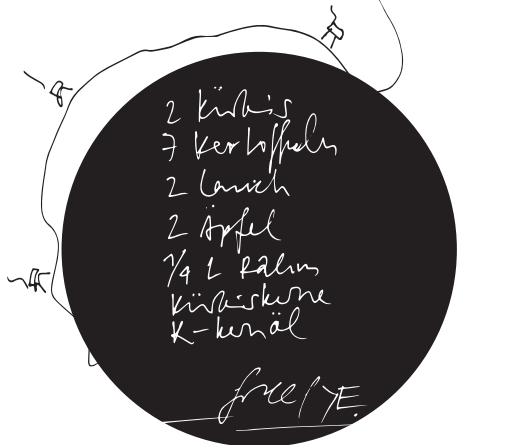 2 Kürbis
7 Kartoffeln
2 Lauch
2 Äpfel
1/4 L Rahm
Kürbiskerne
K-kernöl